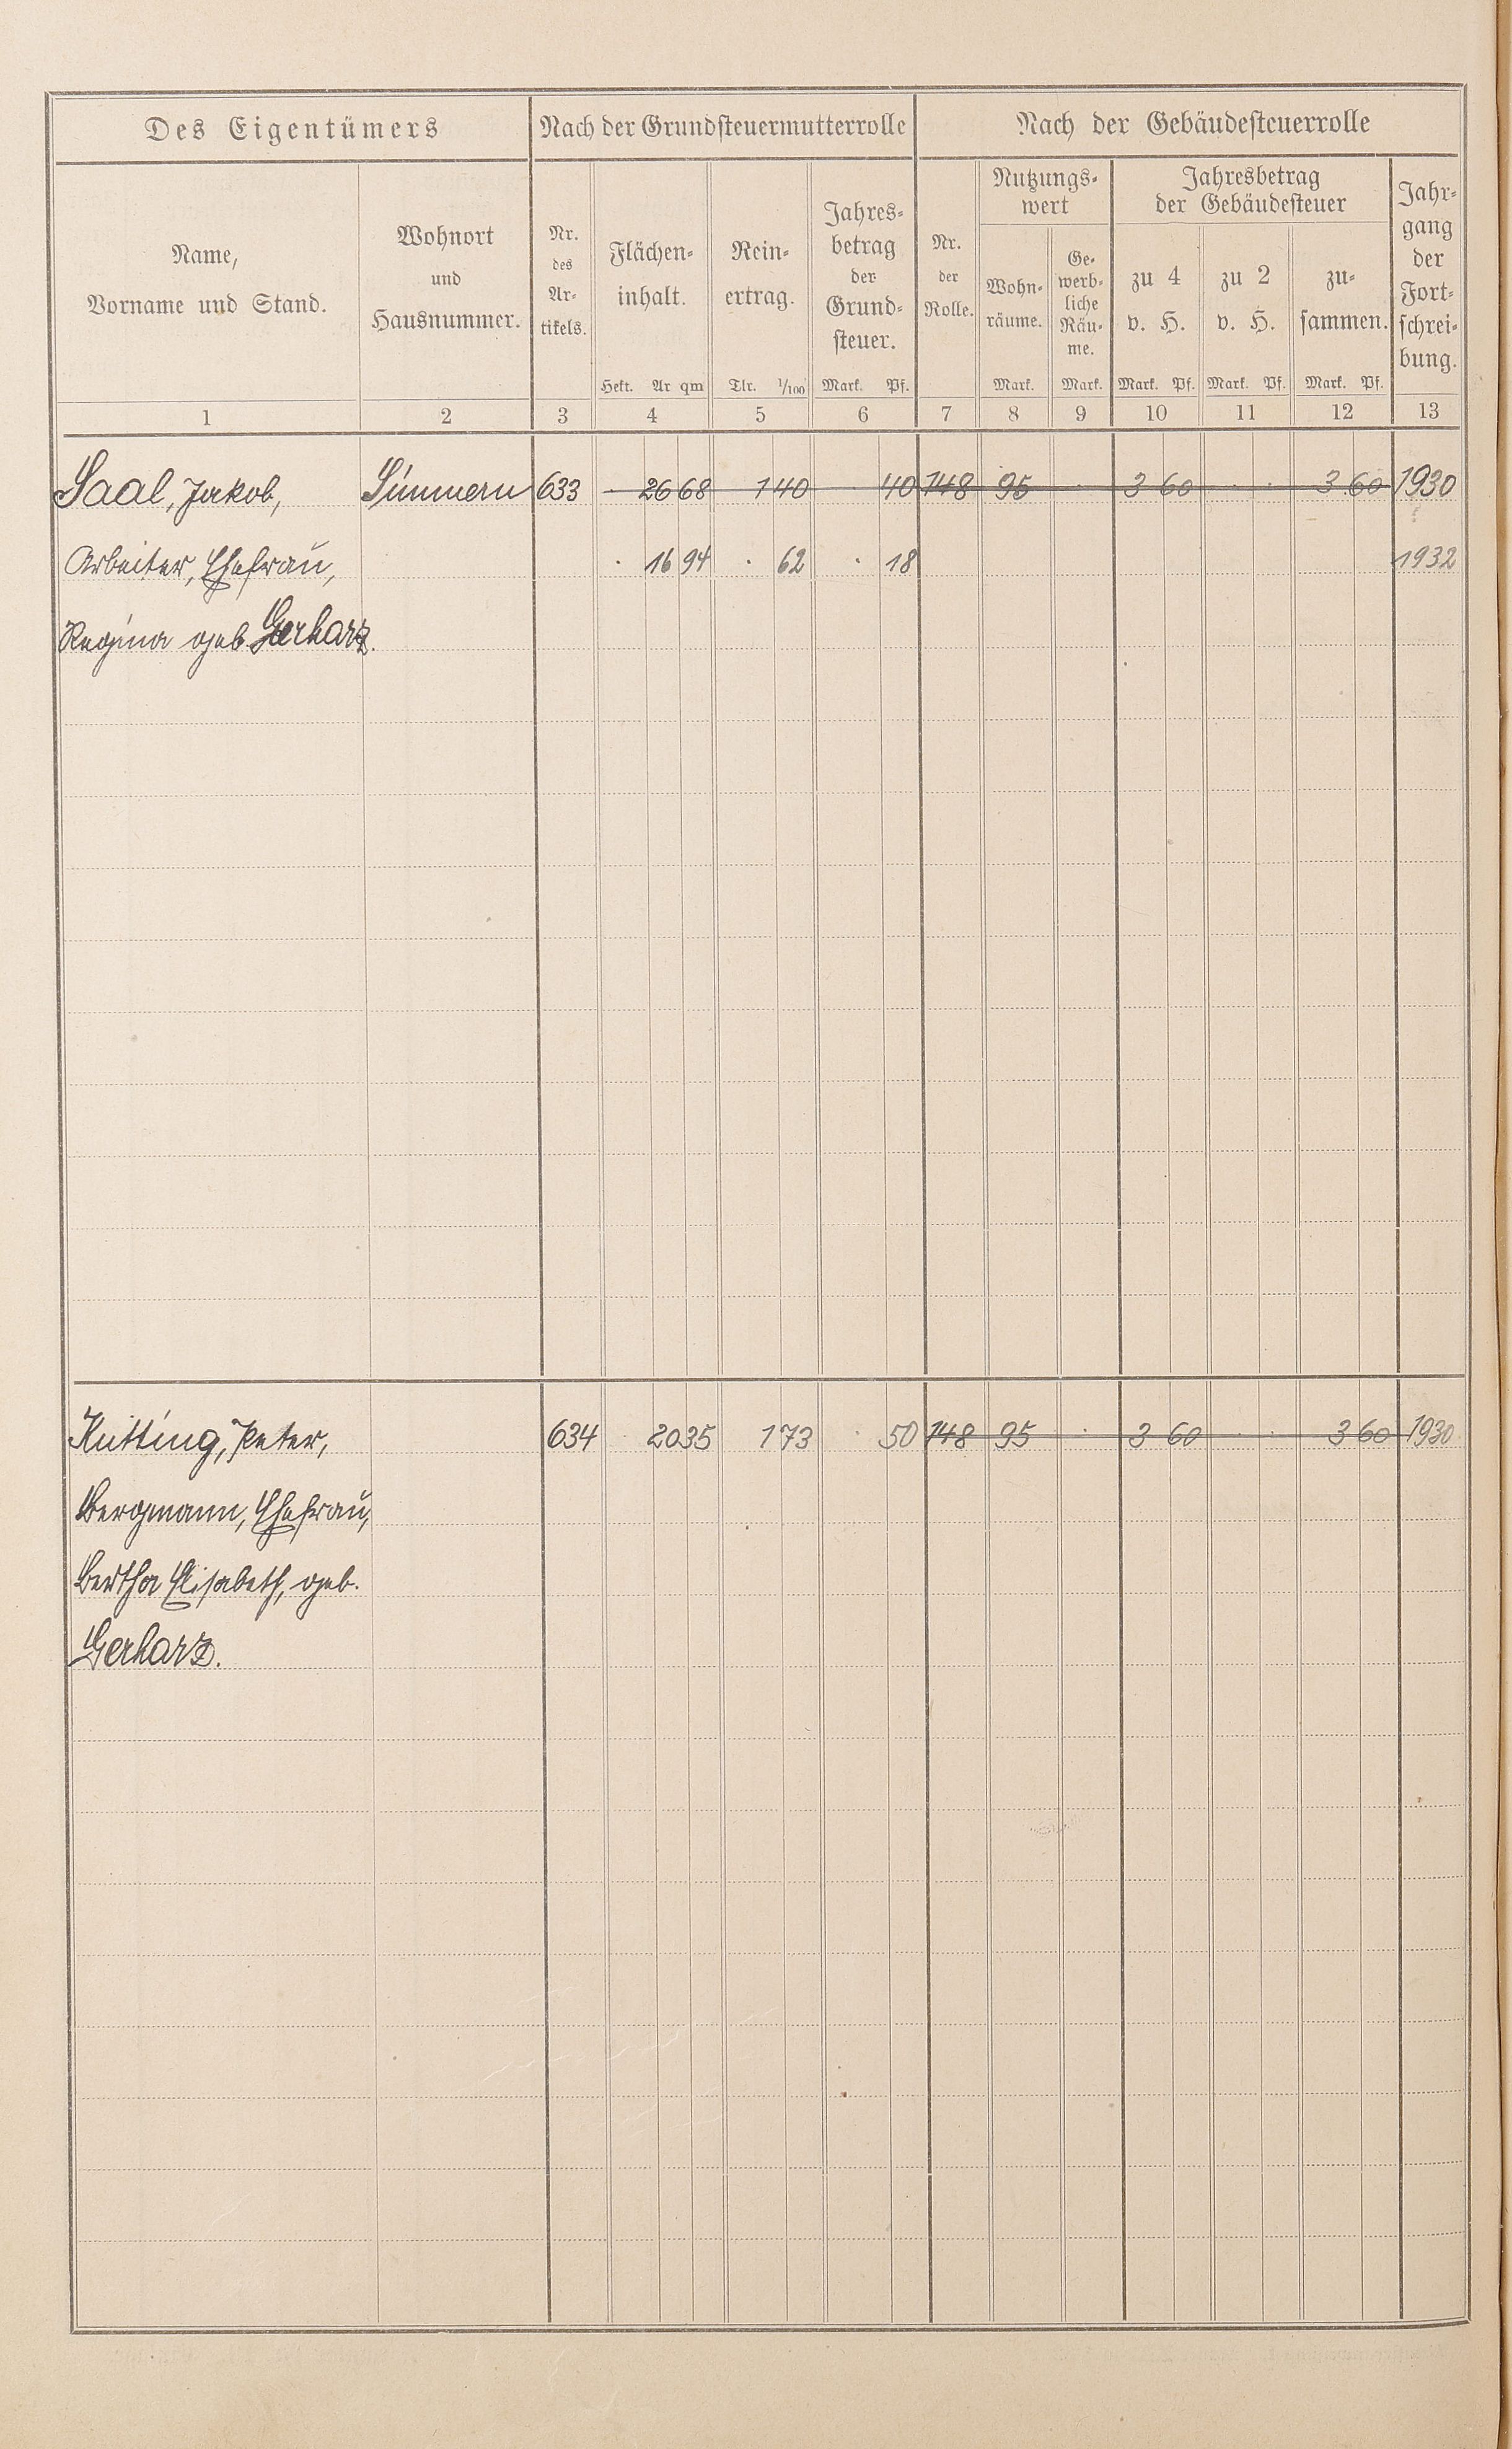 Des Eigentümers Nach der Grundsteuermutterrolle Nach der Gebäudesteuerrolle
Name, Vorname und Stand.
Wohnort und Hausnummer.
Nr. des Artikels.
Flächeninhalt.
Reinertrag.
Jahresbetrag der Grundsteuer.
Nr. der Rolle.
Nutzungswert
Wohnräume.
Gewerbliche Räume.
Jahresbetrag der Gebäudesteuer
zu 4 v. H.
zu 2 v. H.
zusammen.
Jahrgang der Fortschreibung.
Hekt. Ar qm Tlr. 1/100 Mark. Pf. Mark. Mark. Mark. Pf. Mark. Pf. Mark. Pf.
1 2 3 4 5 6 7 8 9 10 11 12 13
Saal, Jakob, Simmern 633 · 26 68 1 40 · 40 148 95 · 3 60 · · 3 60 1930
Arbeiter, Ehefrau, · 16 94 · 62 · 18 1932
Regina geb. Gerharz.
Knitting, Peter, 634 · 20 35 1 73 · 50 148 95 · 3 60 · · 3 60 1930
Bergmann, Ehefrau,
Bertha Elisabeth, geb.
Gerharz.